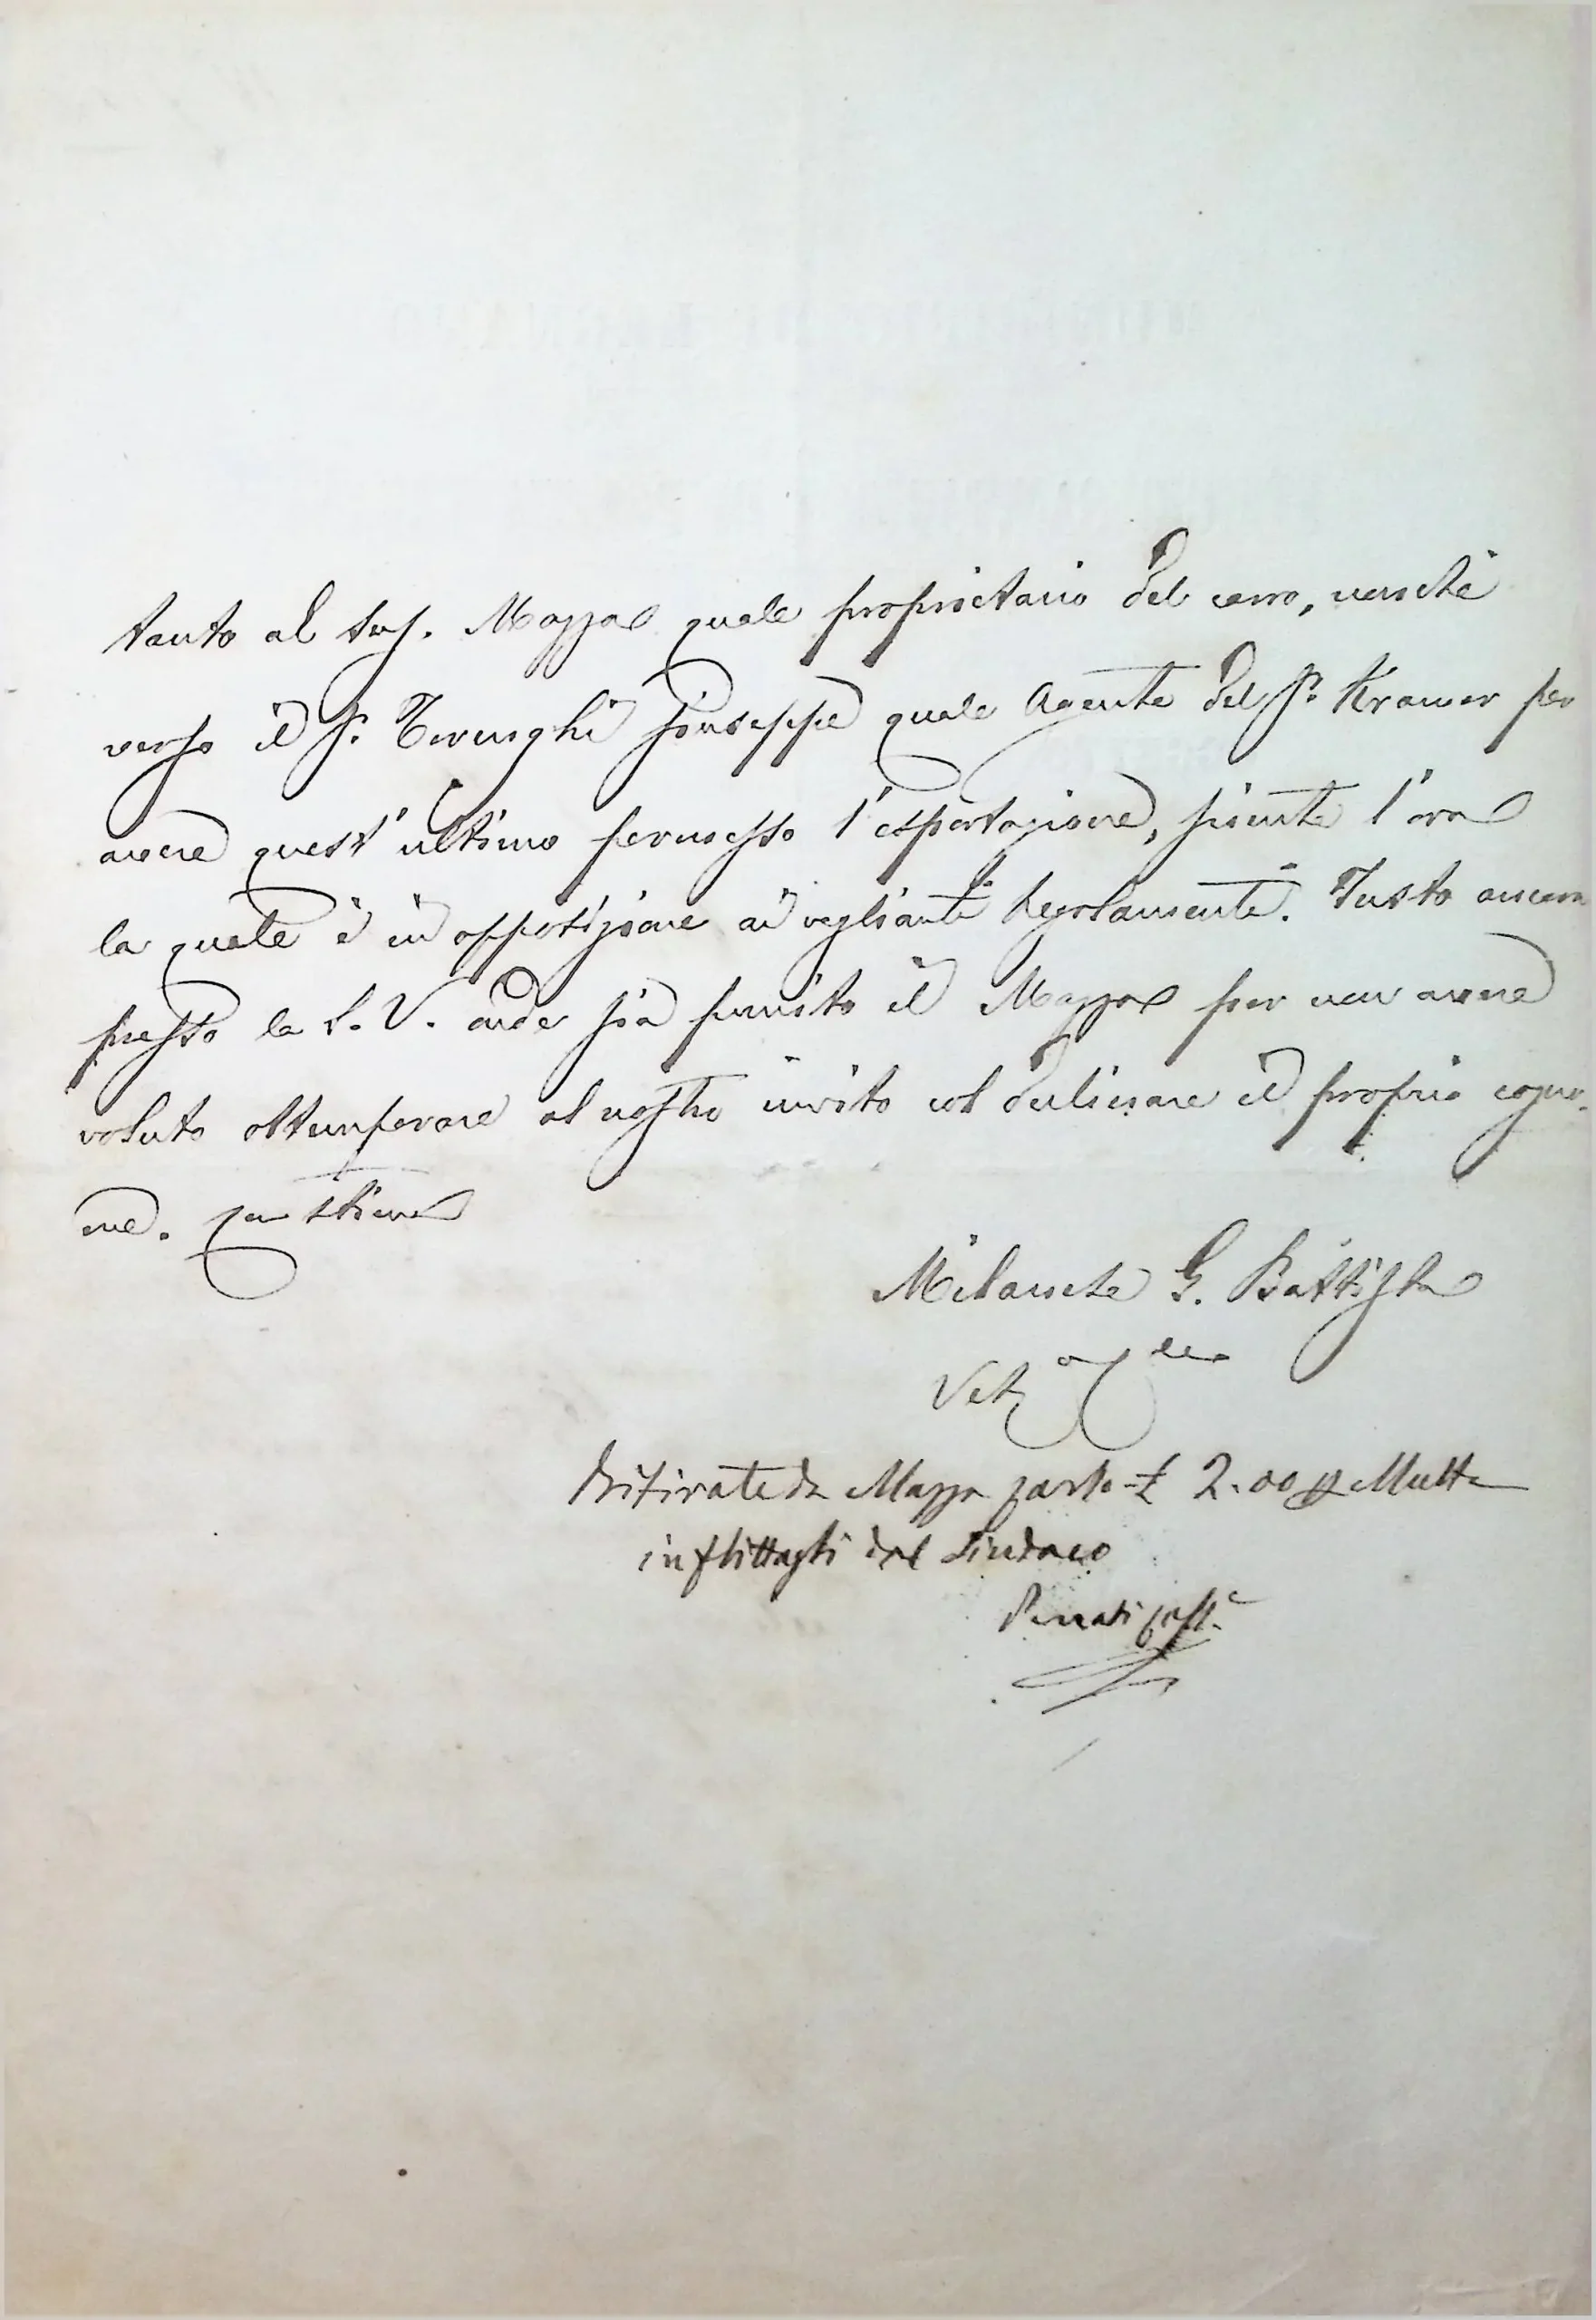 tanto al sud. Mazza quale proprietario del carro, nonchè
verso il S.r Terenghi Giuseppe quale Agente del S.r Kramer per
avere quest'ultimo permesso l'esportazione, finente l'ora
la quale è in opposizione ai veglianti Regolamenti. Insto ancora
presso la S. V. onde sia punito il Mazza per non avere
voluto ottemperare al nostro invito col declinare il proprio cogno-
me. Con stima
Milanese G. Battista
Ritirate da Mazza Carlo £ 2.00 p Multa
inflittagli dal Sindaco
Penati